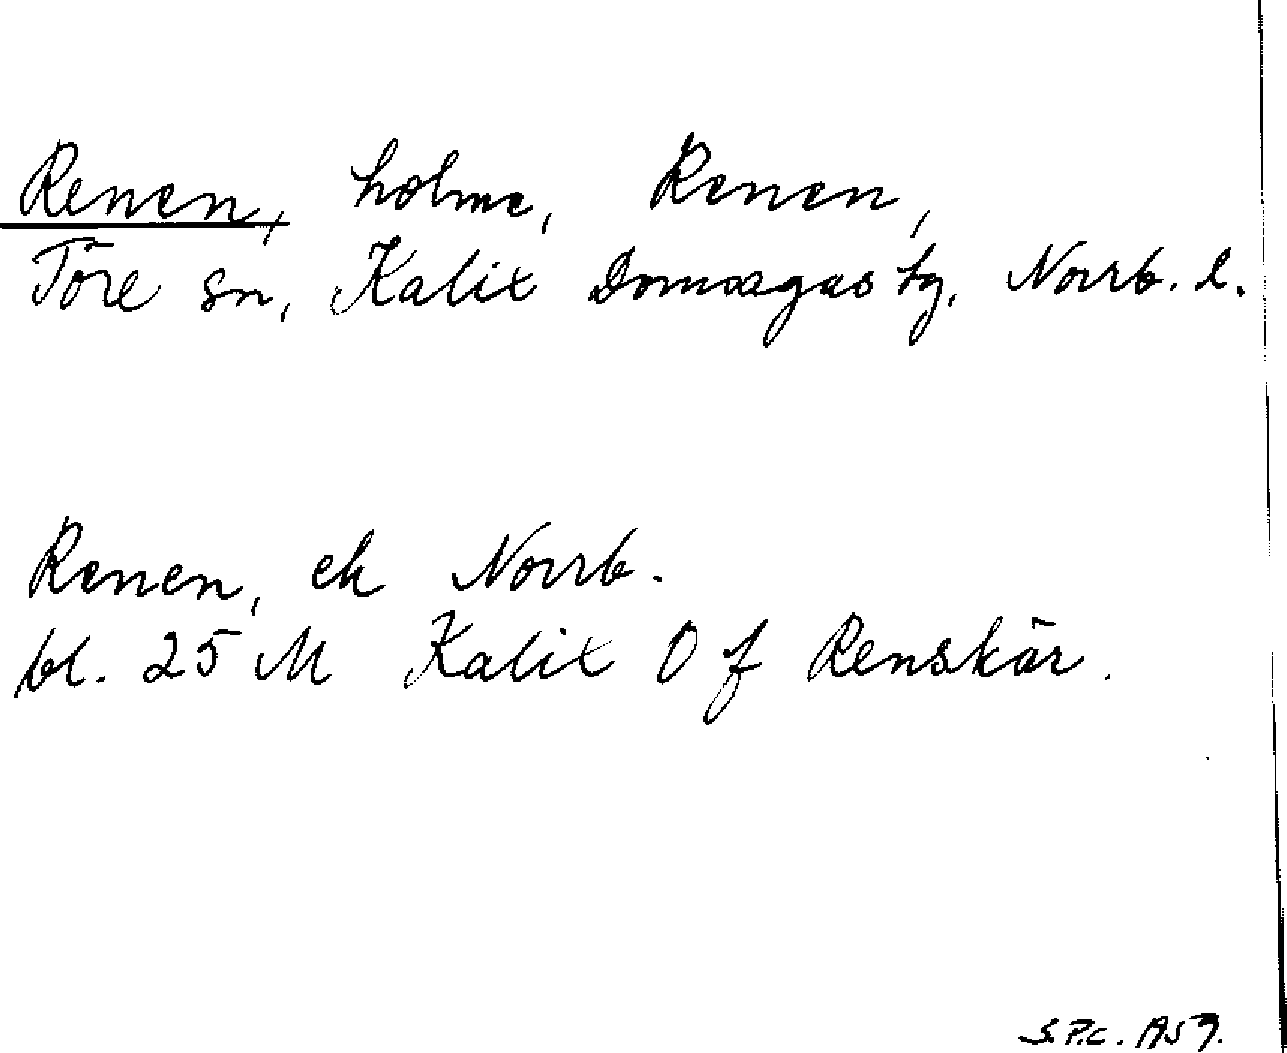 Renen, holme, Renen,
Töre sn, Kalix Domsagas tg, Norrb. l.
Renen, ek Norrb.
bl. 25 M Kalix O f Renskär.
S.P.C. 1959.